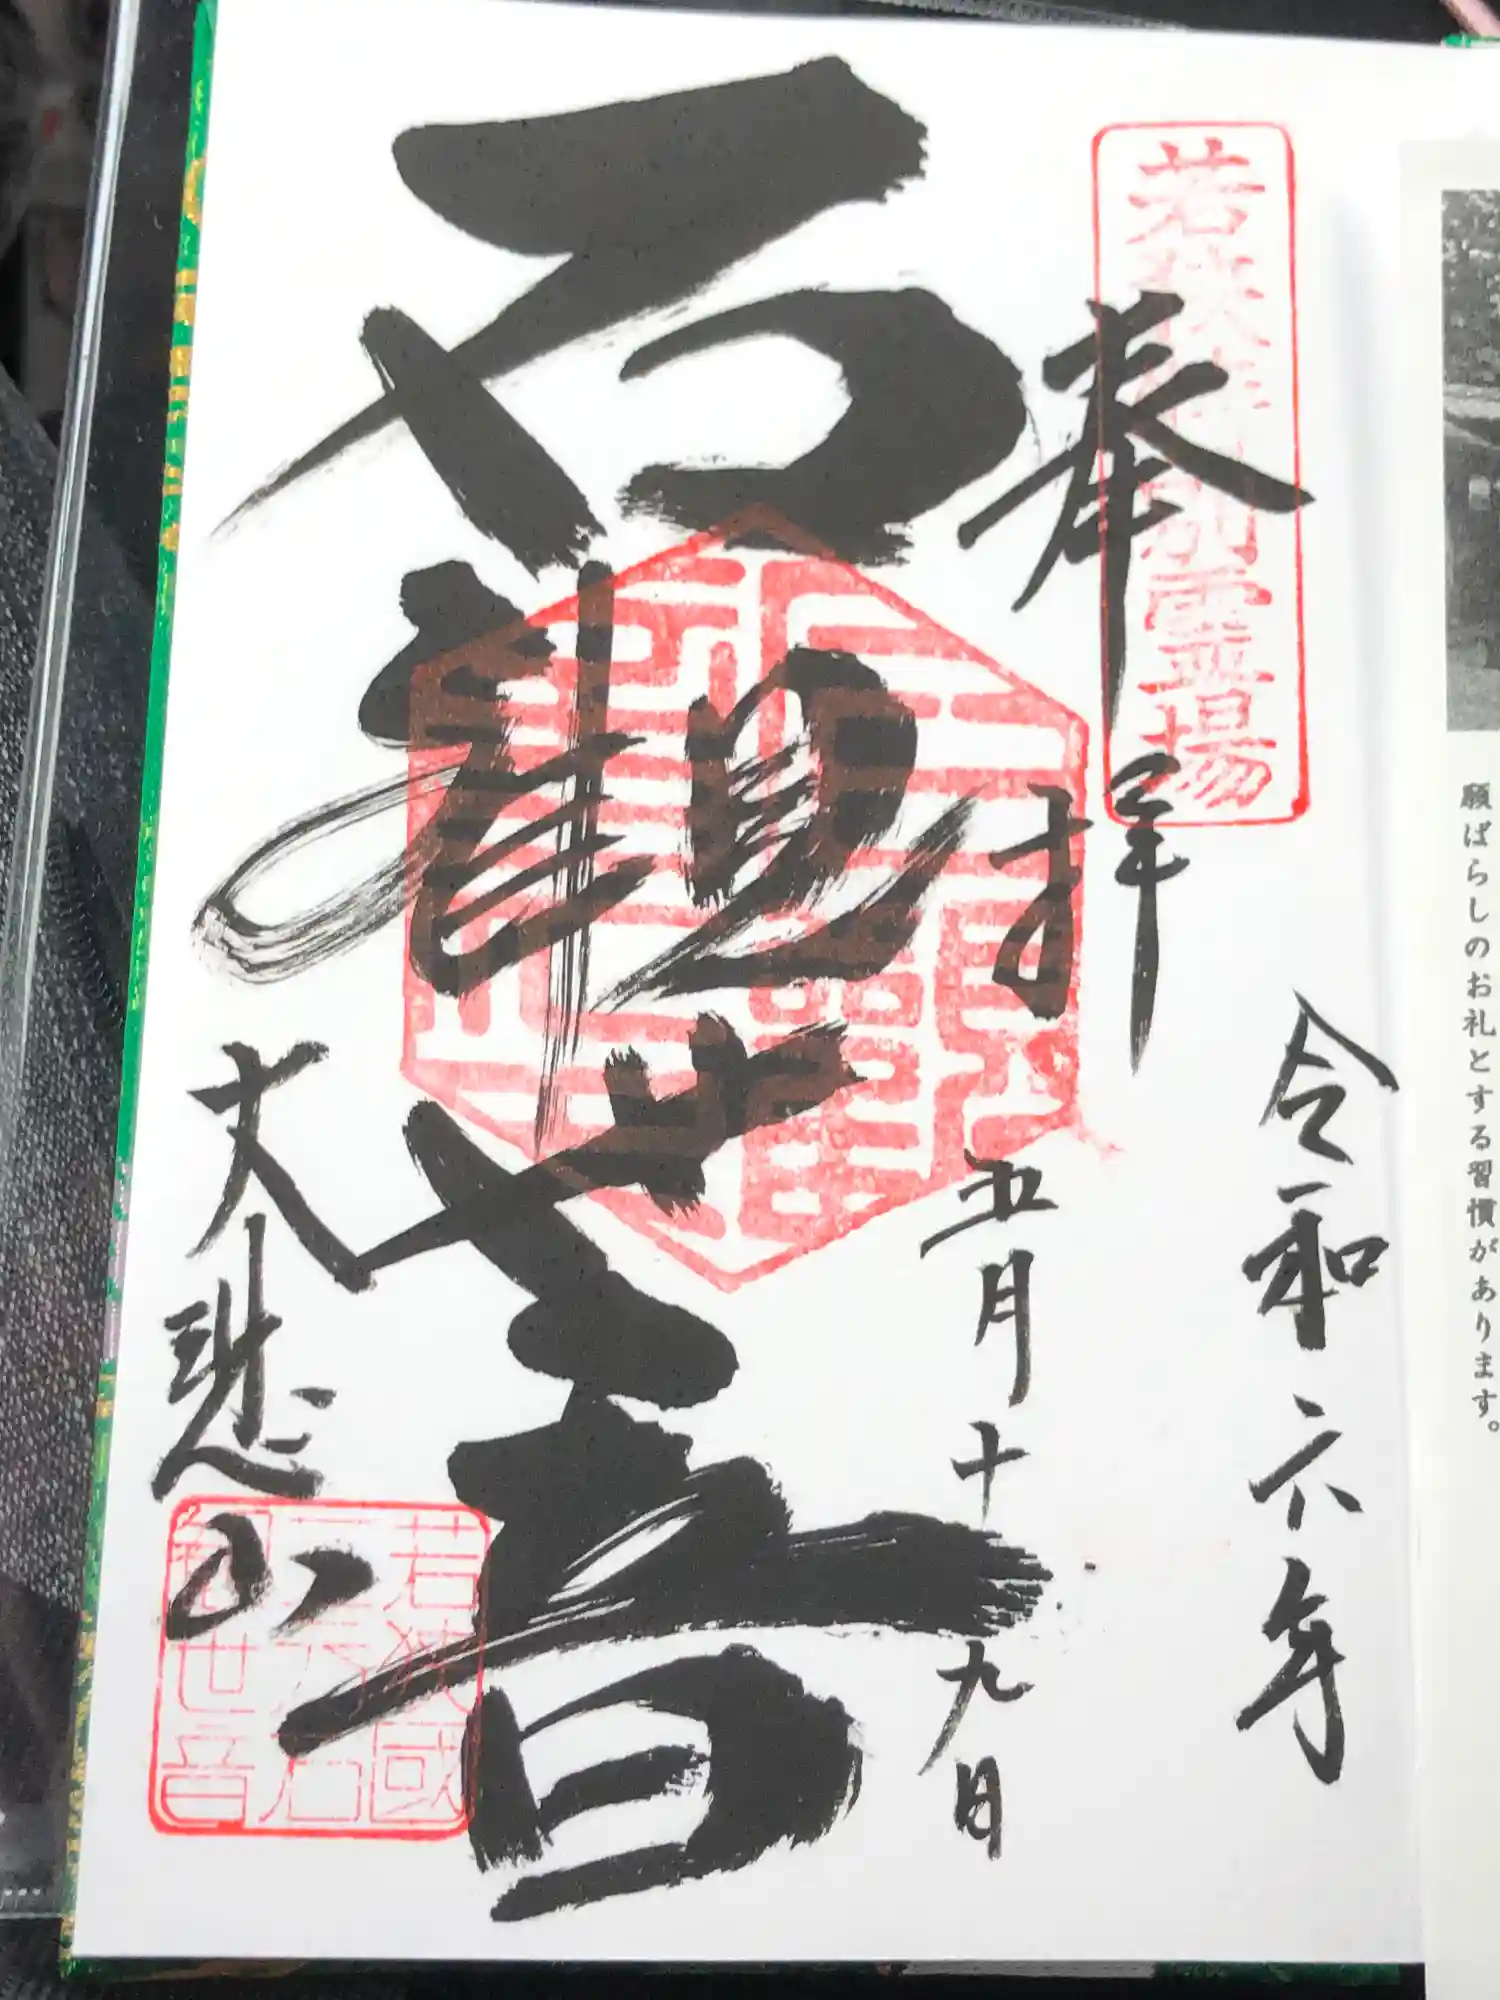 奉拝
令和六年
五月十九日
石観世音
大悲山
若狭
霊場
若狭國
三方石
観世音
願ばらしのお礼とする習慣があります。